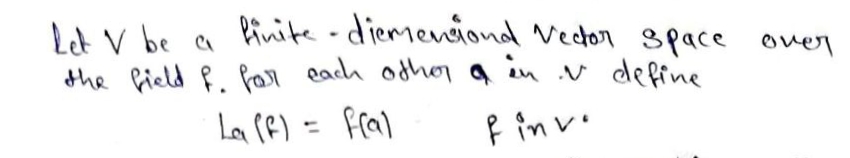 Let V be a finite - diemensiond Vector space over
the field f. for each other a in v define
La(f) = f(a) f in v.